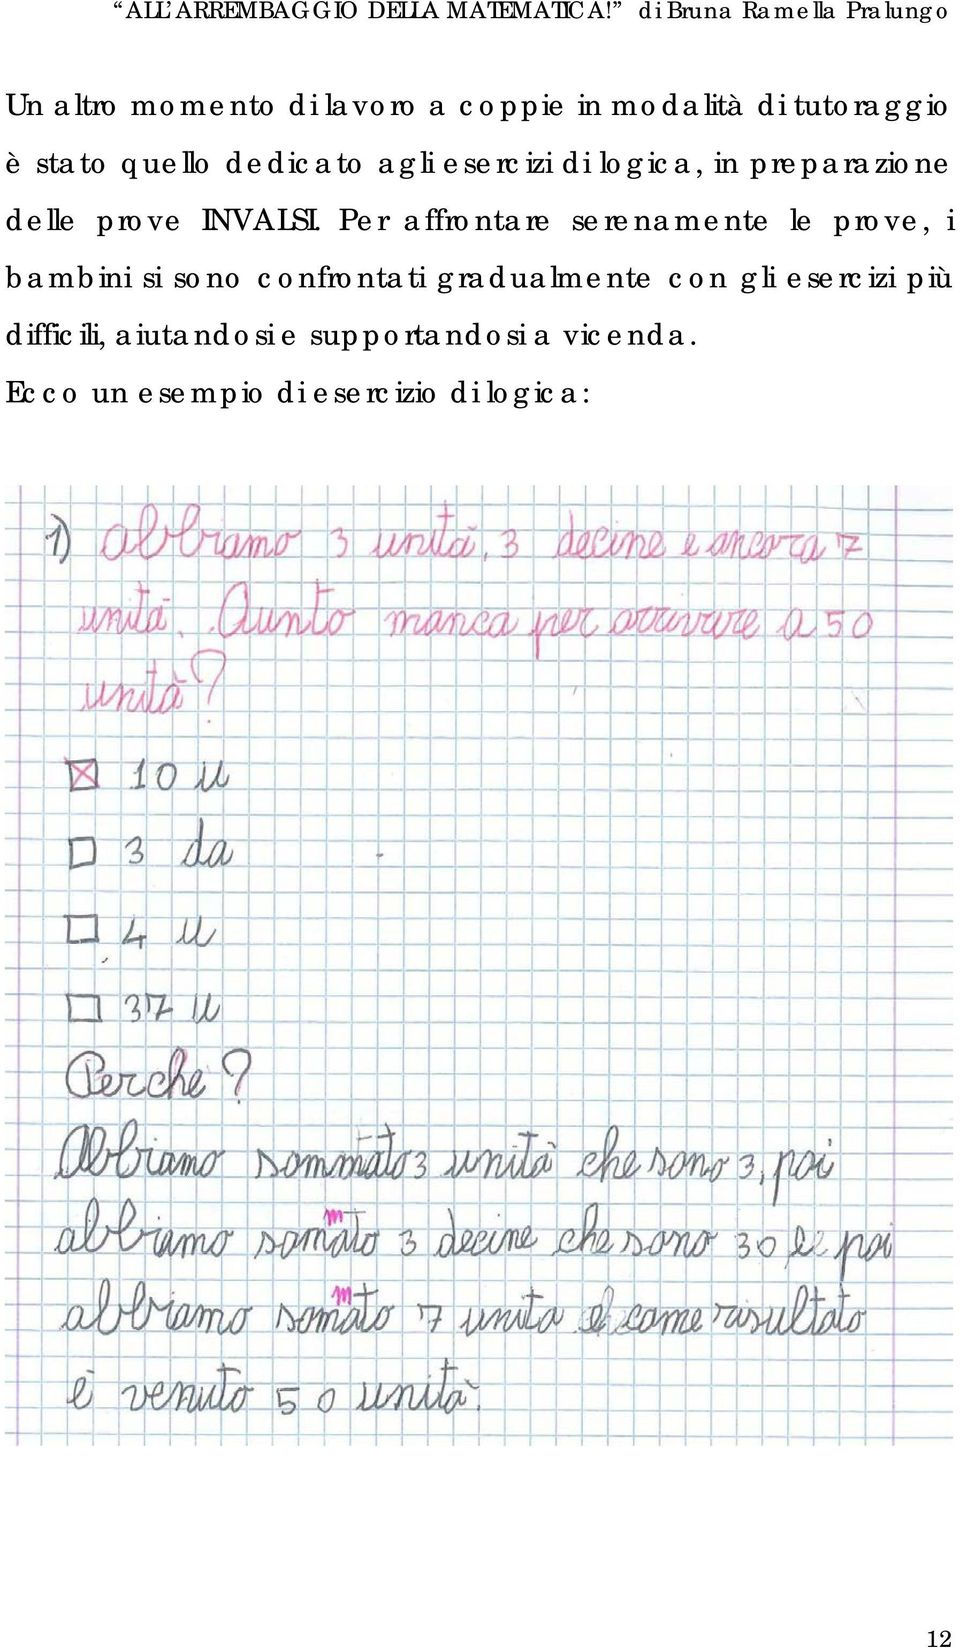 “ALL’ARREMBAGGIO DELLA MATEMATICA!” di Bruna Ramella Pralungo
Un altro momento di lavoro a coppie in modalità di tutoraggio
è stato quello dedicato agli esercizi di logica, in preparazione
delle prove INVALSI. Per affrontare serenamente le prove, i
bambini si sono confrontati gradualmente con gli esercizi più
difficili, aiutandosi e supportandosi a vicenda.
Ecco un esempio di esercizio di logica:
1) Abbiamo 3 unità, 3 decine e ancora 7
unità. Qunto manca per arrivare a 50
unità?
10 u
3 da
4 u
37 u
Perche?
Abbiamo sommato 3 unità che sono 3, poi
abbiamo sommato 3 decine che sono 30 e poi
abbiamo sommato 7 unita e come risultato
è venuto 50 unità.
12